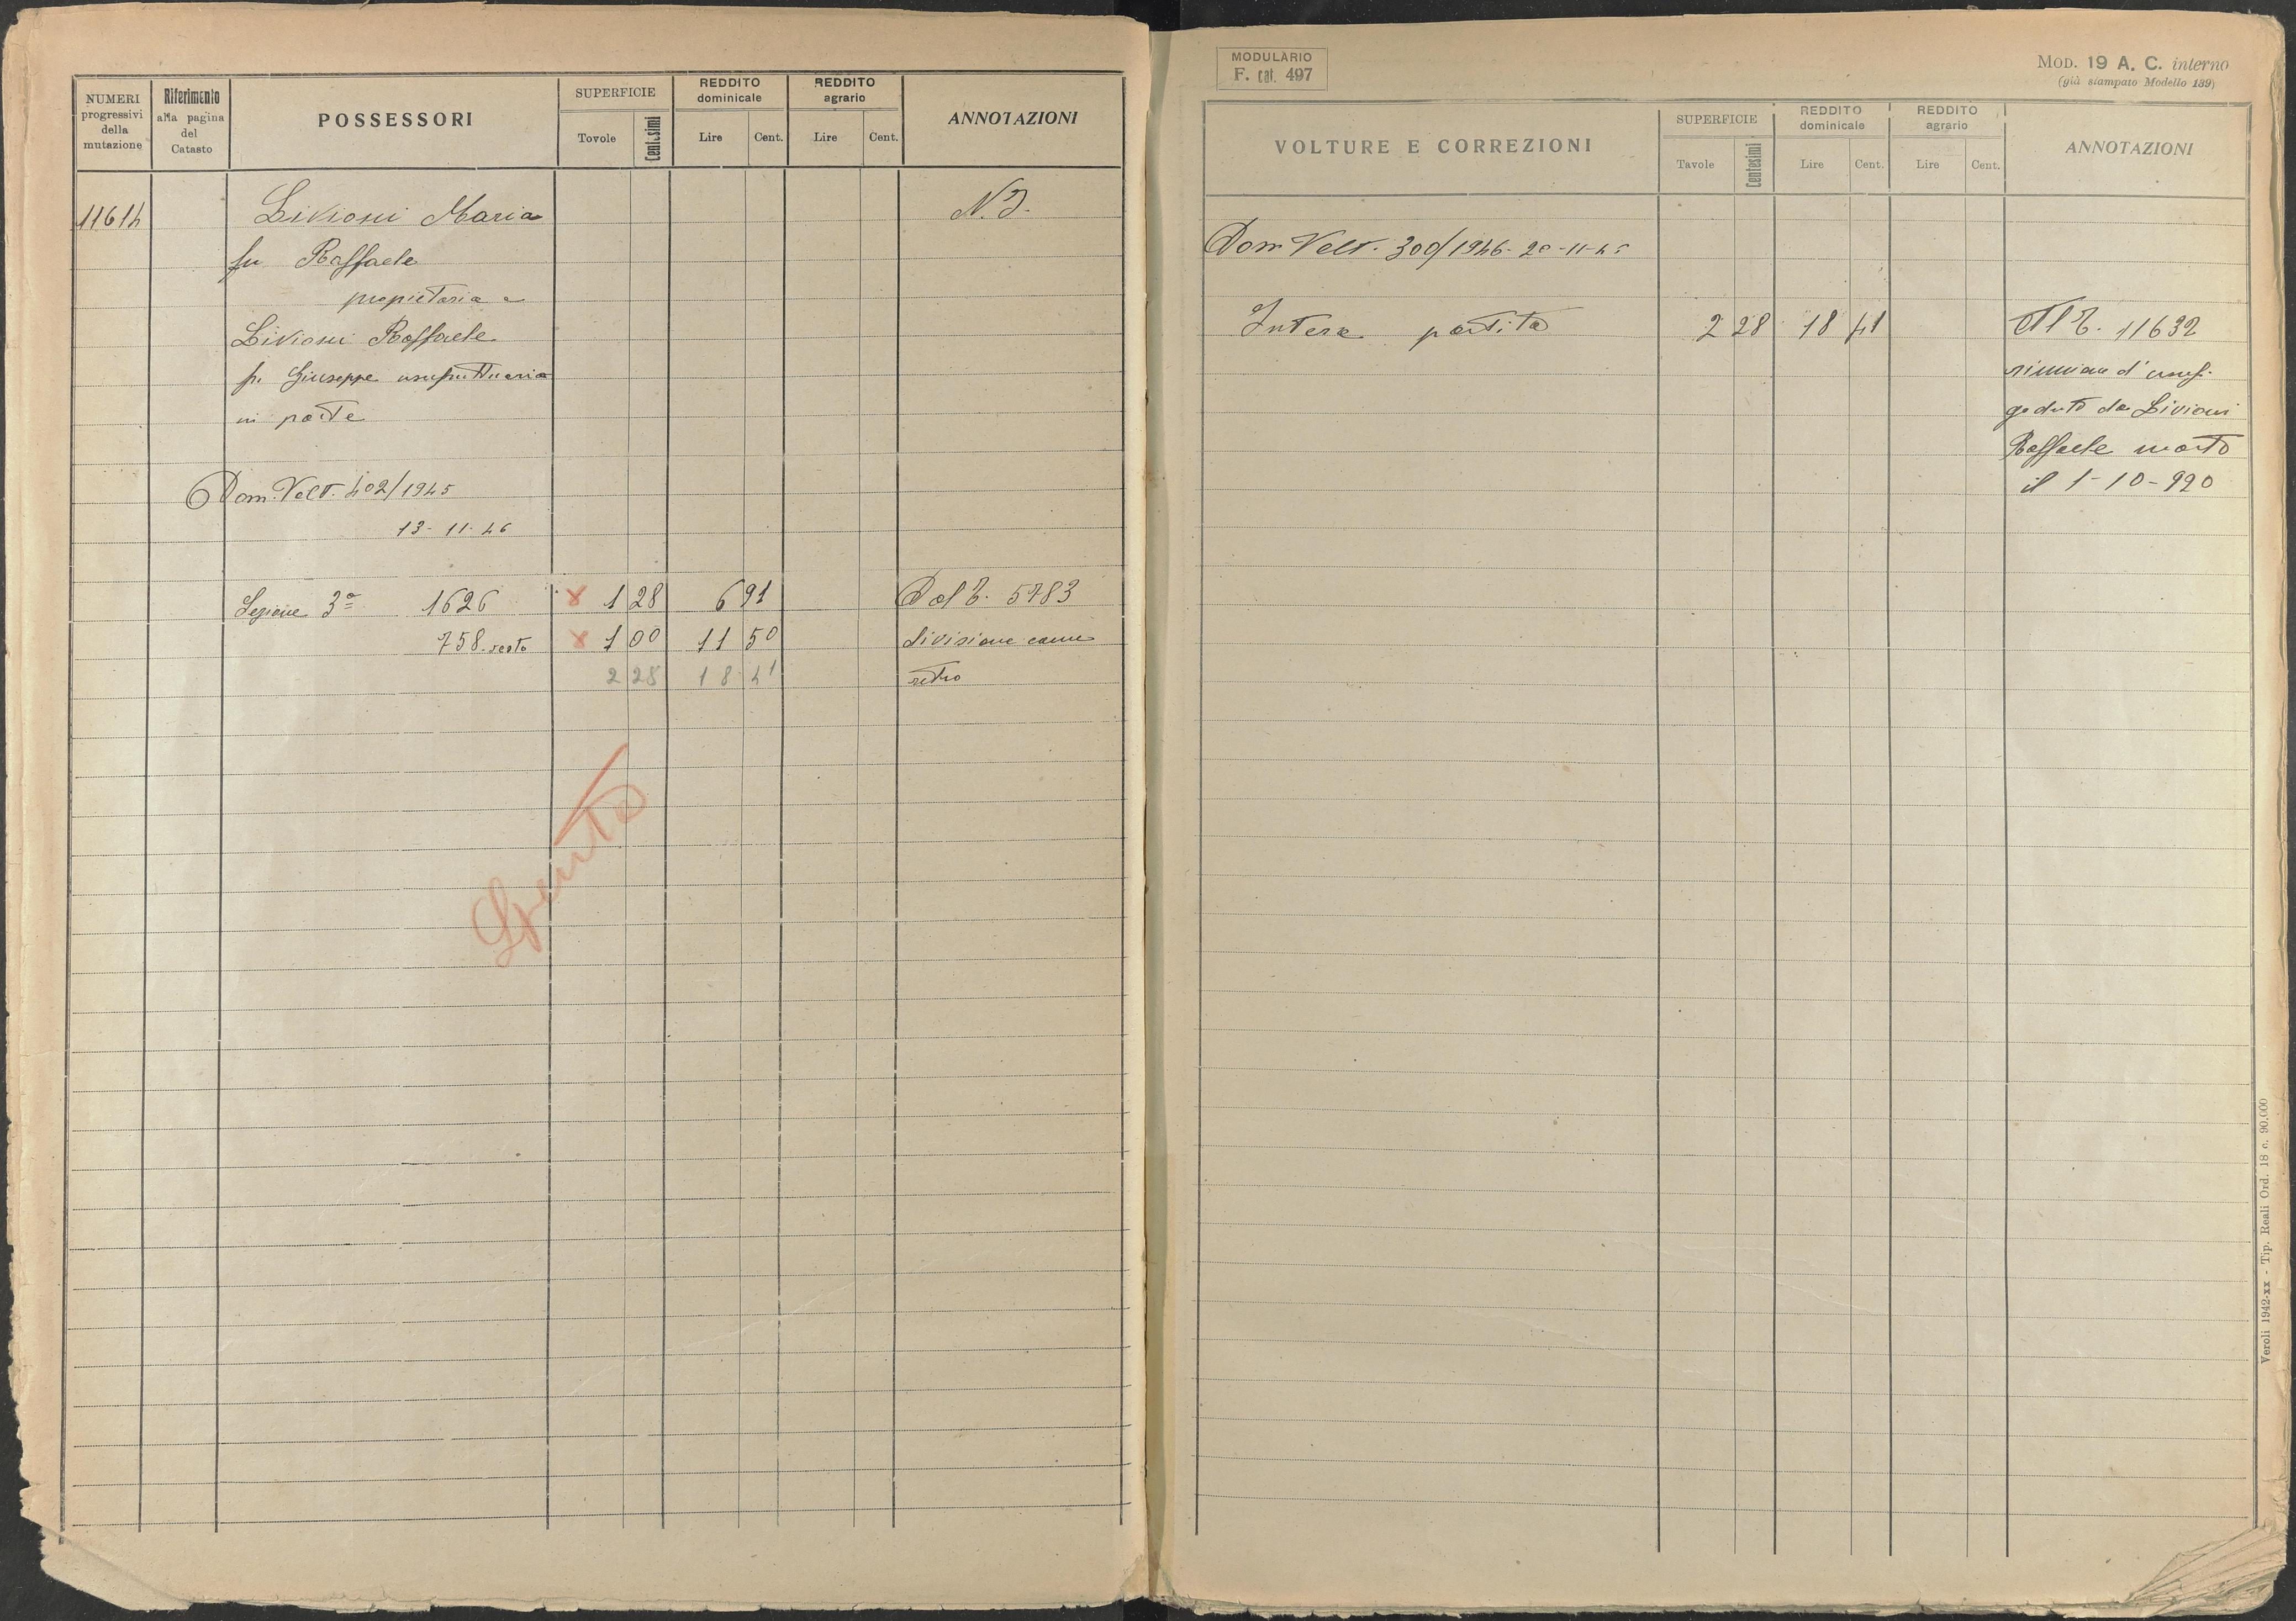 NUMERI progressivi della mutazione
Riferimento alla pagina del Catasto
POSSESSORI
SUPERFICIE
Tavole Centesimi
REDDITO dominicale
Lire Cent.
REDDITO agrario
Lire Cent.
ANNOTAZIONI
11614 Livioni Maria N. I.
fu Raffaele
propietaria e
Livioni Raffaele
fu Giuseppe usufruttuaria
in parte
Dom. Volt. 402/1945
13-11-46
Sezione 3ª 1626 x 1 28 6 91 Dal P. 5783
758 resto x 1 00 11 50 divisione come
2 28 18 41 retro
Spento
MODULARIO
F. cat. 497
MOD. 19 A. C. interno
(già stampato Modello 139)
VOLTURE E CORREZIONI
SUPERFICIE
Tavole Centesimi
REDDITO dominicale
Lire Cent.
REDDITO agrario
Lire Cent.
ANNOTAZIONI
Dom Volt. 300/1946 20-11-46
Intera partita 2 28 18 41 Al P. 11632
riunione d'usuf.
goduto da Livioni
Raffaele morto
il 1-10-920
Veroli 1942-xx - Tip. Reali Ord. 18 c. 90.000